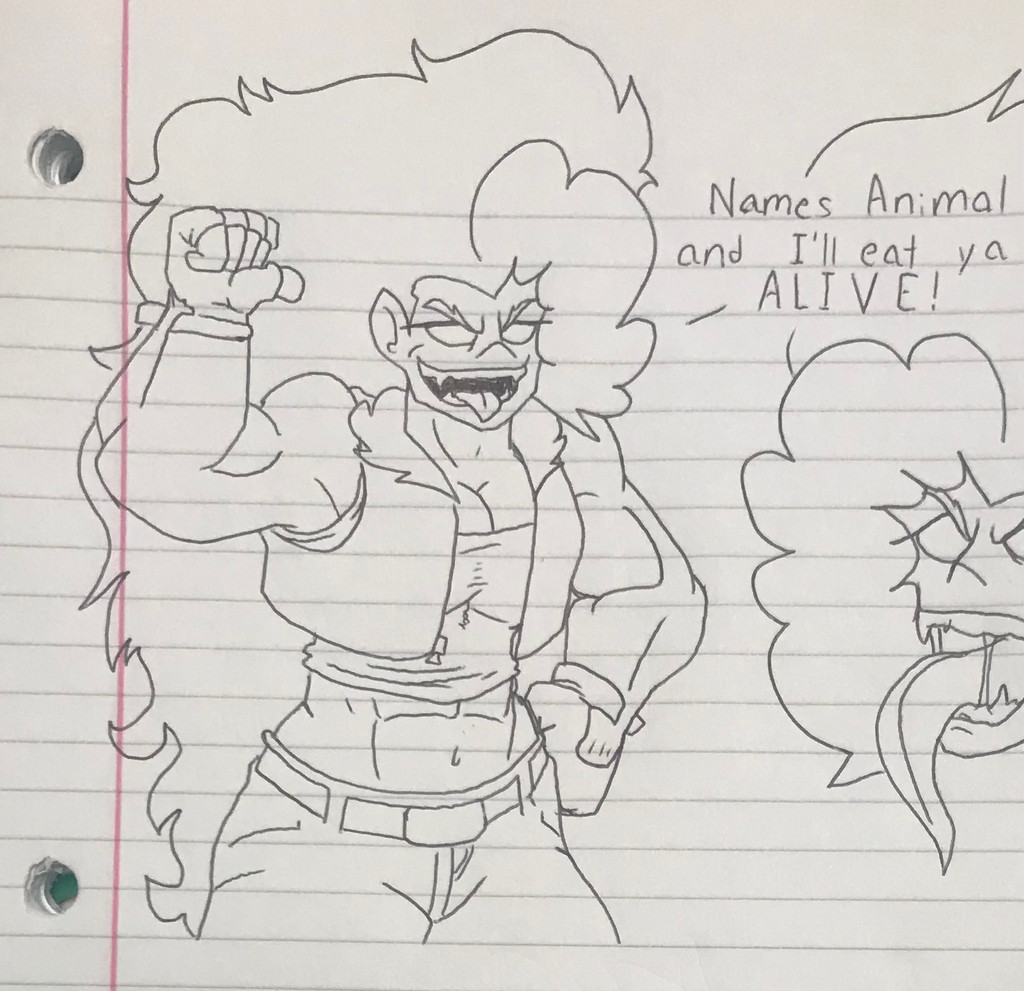 Names Animal
and I'll eat ya
ALIVE!